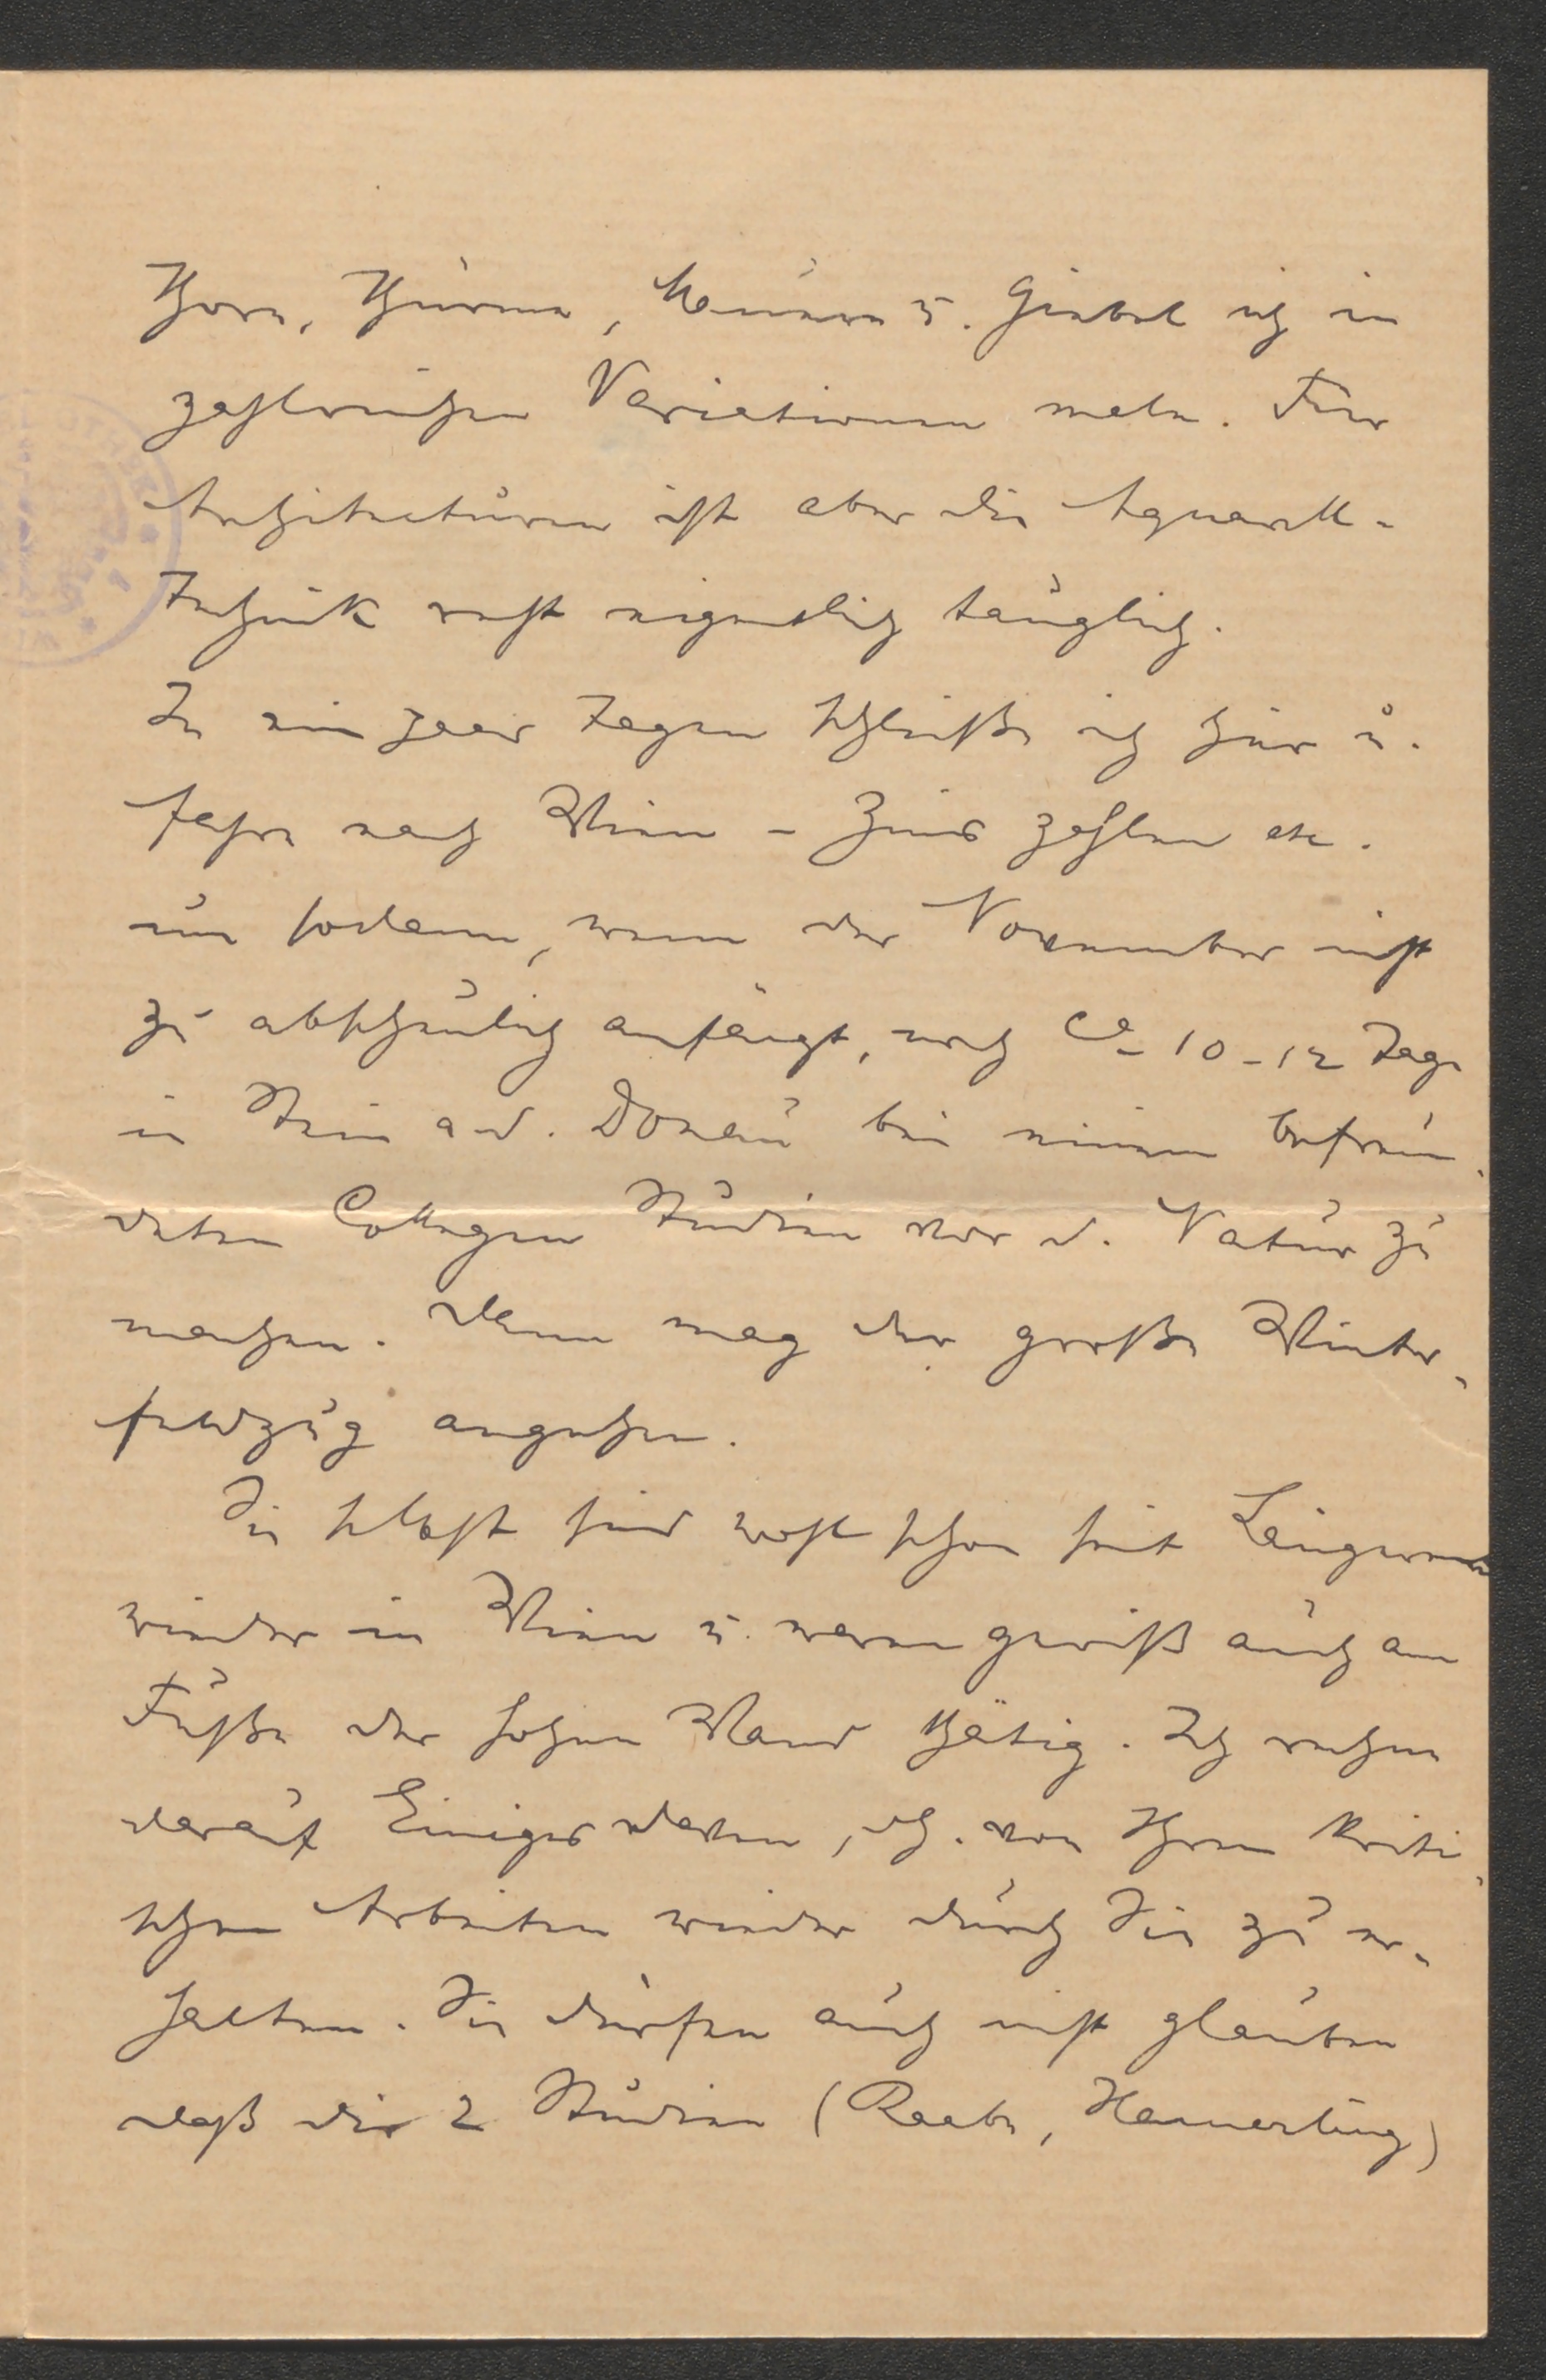 Thore, Thürme, Mauern u. Giebel ich in
zahlreichen Variationen male. Für
Architecturen ist aber die Aquarell-
Technik recht eigentlich tauglich.
In ein paar Tagen schließe ich hier u.
fahre nach Wien – Zins zahlen etc.
um sodann, wenn der November nicht
zu abscheulich anfängt, noch ca 10–12 Tage
in Stein a. d. Donau bei einem befreun-
deten Collegen Studien vor d. Natur zu
machen. Dann mag der große Winter-
feldzug angehen.
Sie selbst sind wohl schon seit Längerem
wieder in Wien u. waren gewiß auch am
Fuße der hohen Wand thätig. Ich rechne
darauf Einiges davon, d.h. von Ihren kriti-
schen Arbeiten wieder durch Sie zu er-
halten. Sie dürfen auch nicht glauben
daß die 2 Studien (Raabe, Hamerling)